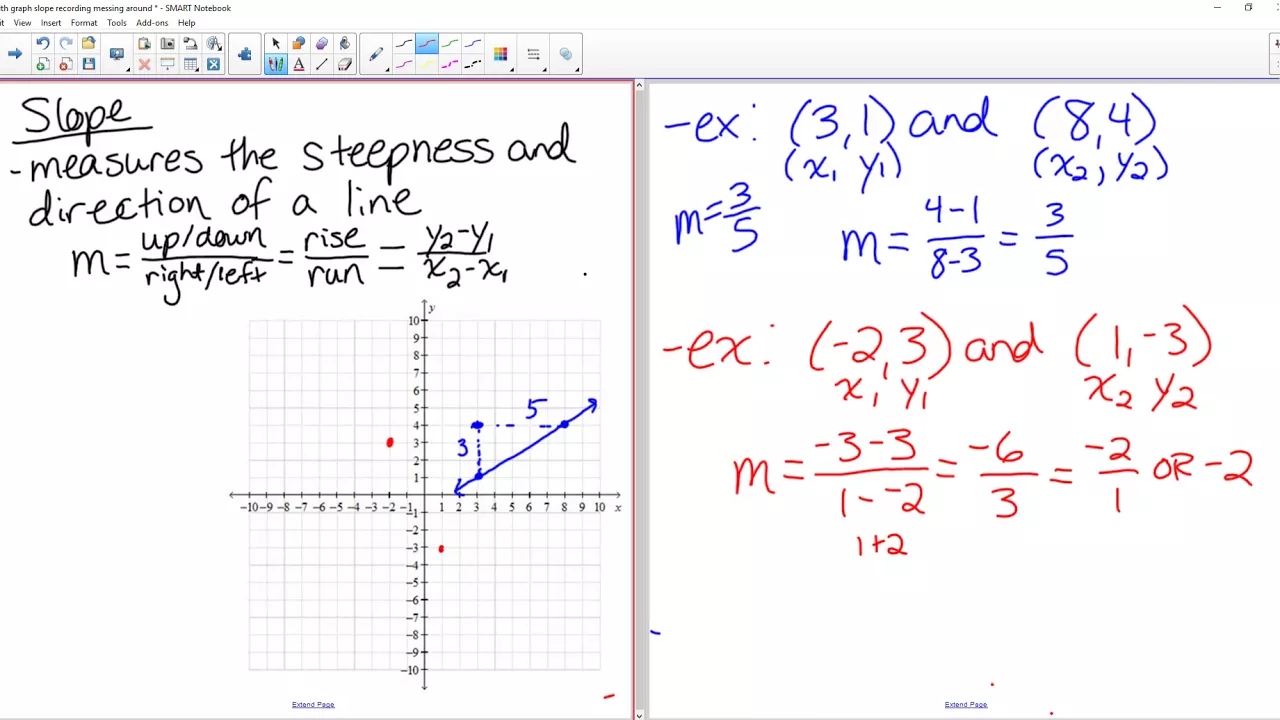 th graph slope recording messing around * - SMART Notebook
it View Insert Format Tools Add-ons Help
Slope
- measures the steepness and
direction of a line
m = up/down / right/left = rise / run = y2 - y1 / x2 - x1
y
10
9
8
7
6
5
4
3
2
1
-10 -9 -8 -7 -6 -5 -4 -3 -2 -1 1 2 3 4 5 6 7 8 9 10 x
-1
-2
-3
-4
-5
-6
-7
-8
-9
-10
5
3
Extend Page
- ex: (3, 1) and (8, 4)
(x1 y1) (x2, y2)
m = 3/5 m = 4 - 1 / 8 - 3 = 3/5
- ex: (-2, 3) and (1, -3)
x1 y1 x2 y2
m = -3 - 3 / 1 - -2 = -6/3 = -2/1 OR -2
1 + 2
Extend Page